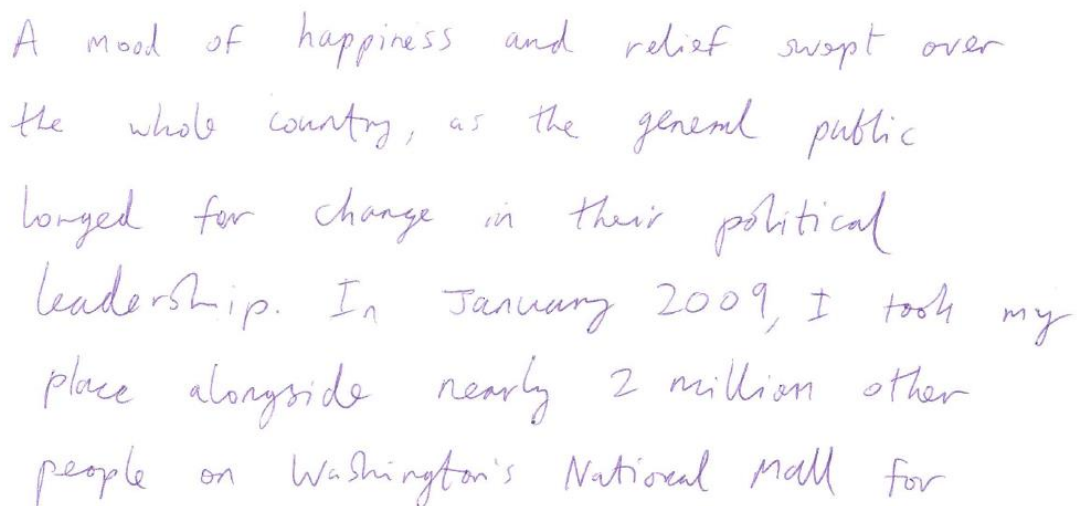 A mood of happiness and relief swept over
the whole country, as the general public
longed for change in their political
leadership. In January 2009, I took my
place alongside nearly 2 million other
people on Washington's National Mall for